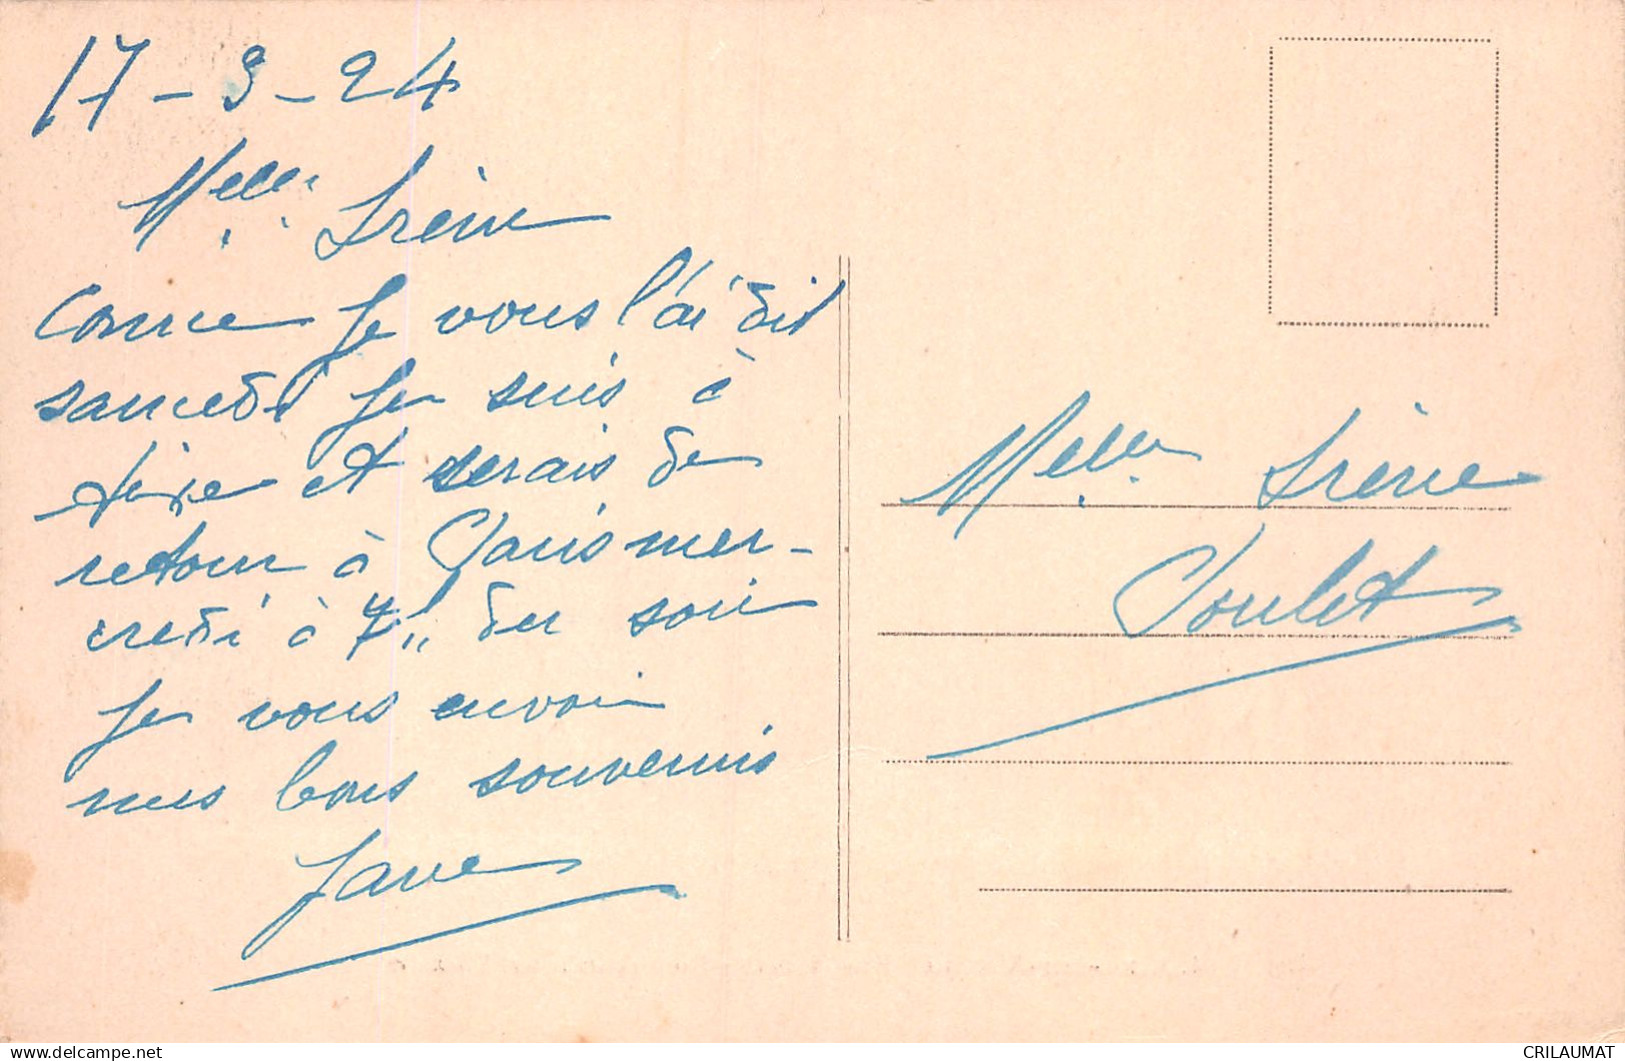 17-3-24
Melle Irène
Comme je vous l'ai dit
samedi je suis à
et serais de
retour à Paris mer-
credi à 7h du soir
je vous envoie
mes bons souvenirs
Jane
Melle Irène
Poulet
CRILAUMAT